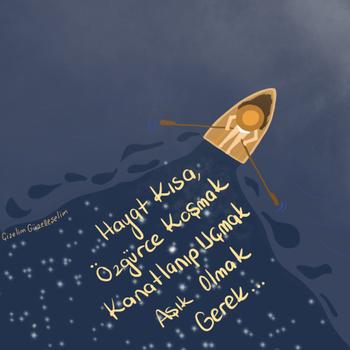 Hayat Kısa,
Özgürce Koşmak
Kanatlanıp Uçmak
Aşık Olmak
Gerek...
Çizelim Güzelleşelim